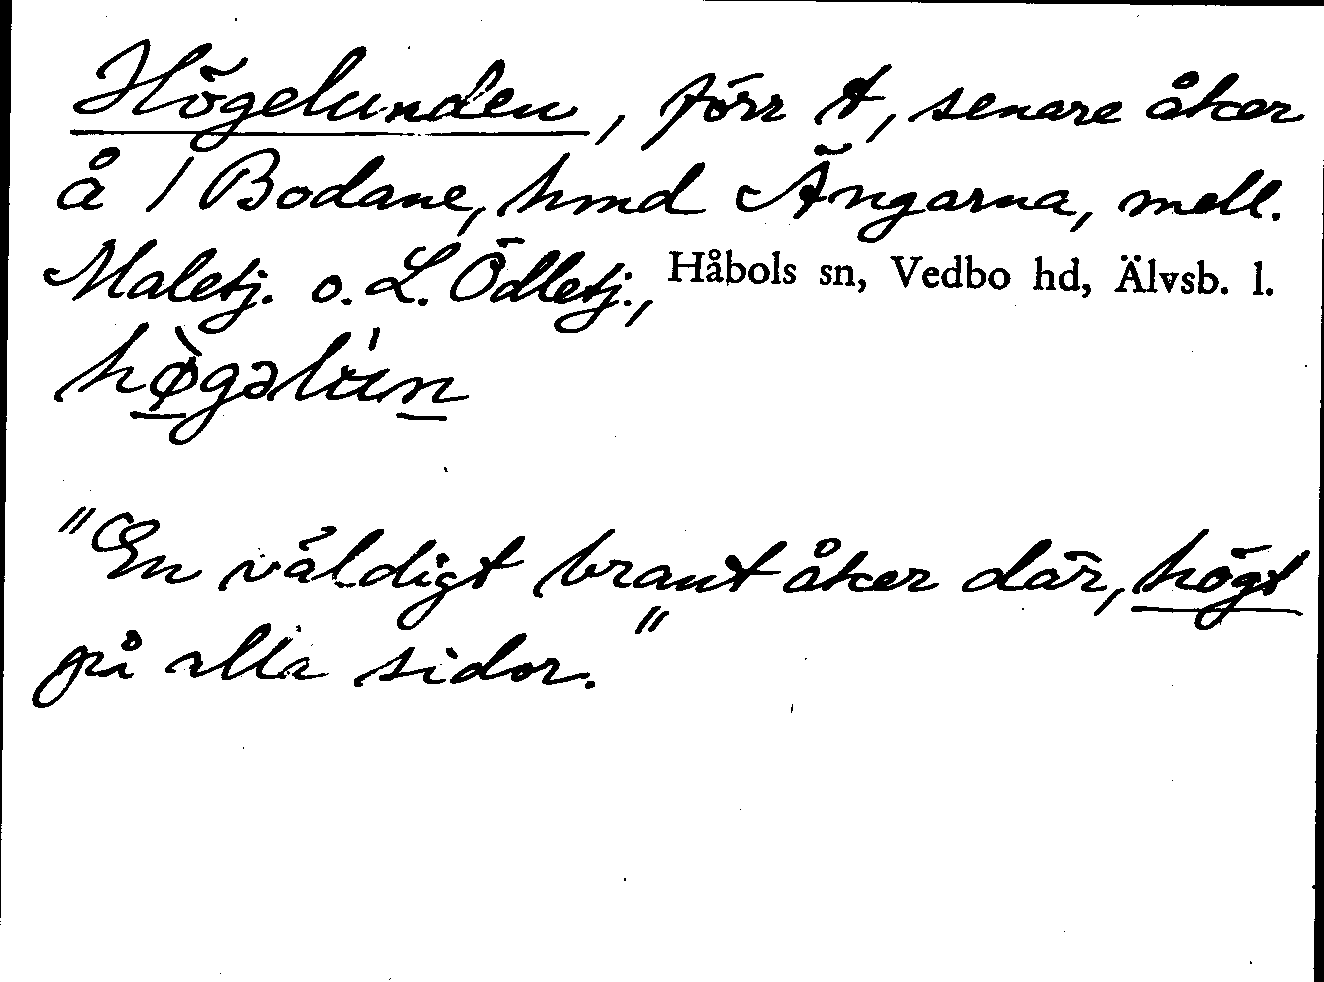 Högelunden, förr t, senare åker
å 1 Bodane, hmd Ängarna, mell.
Maletj. o. L. Ödletj., Håbols sn, Vedbo hd, Älvsb. l.
hø̀gəlu̇n
"En väldigt brant åker där, högt
på alla sidor."